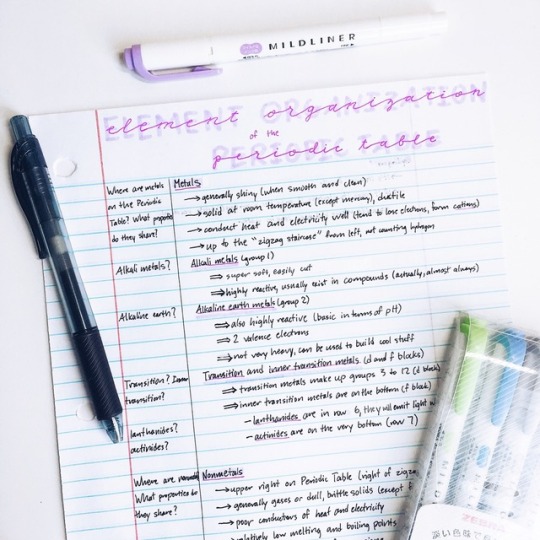 MILDLINER
element organization
ELEMENT ORGANIZATION
of the
periodic table
PERIODIC TABLE
Where are metals
on the Periodic
Table? What
do they share?
Metals
→ generally shiny (when smooth and clean)
→ solid at room temperature (except mercury), ductile
→ conduct heat and electricity well (tend to lose electrons, form cations)
→ up to the "zigzag staircase" from left, not counting hydrogen
Alkali metals?
Alkali metals (group 1)
⇒ super soft, easily cut
⇒ highly reactive, usually exist in compounds (actually, almost always)
Alkaline earth?
Alkaline earth metals (group 2)
⇒ also highly reactive (basic in terms of pH)
⇒ 2 valence electrons
⇒ not very heavy, can be used to build cool stuff
Transition? Inner
transition?
Transition and inner transition metals (d and f blocks)
⇒ transition metals make up groups 3 to 12 (d block)
⇒ inner transition metals are on the bottom (f block)
lanthanides?
actinides?
- lanthanides are in row 6, they will emit light
- actinides are on the very bottom (row 7)
Where are
What properties do
they share?
Nonmetals
→ upper right on Periodic Table (right of
→ generally gases or dull, brittle solids (except
→ poor conductors of heat and electricity
→ relatively low melting and boiling points